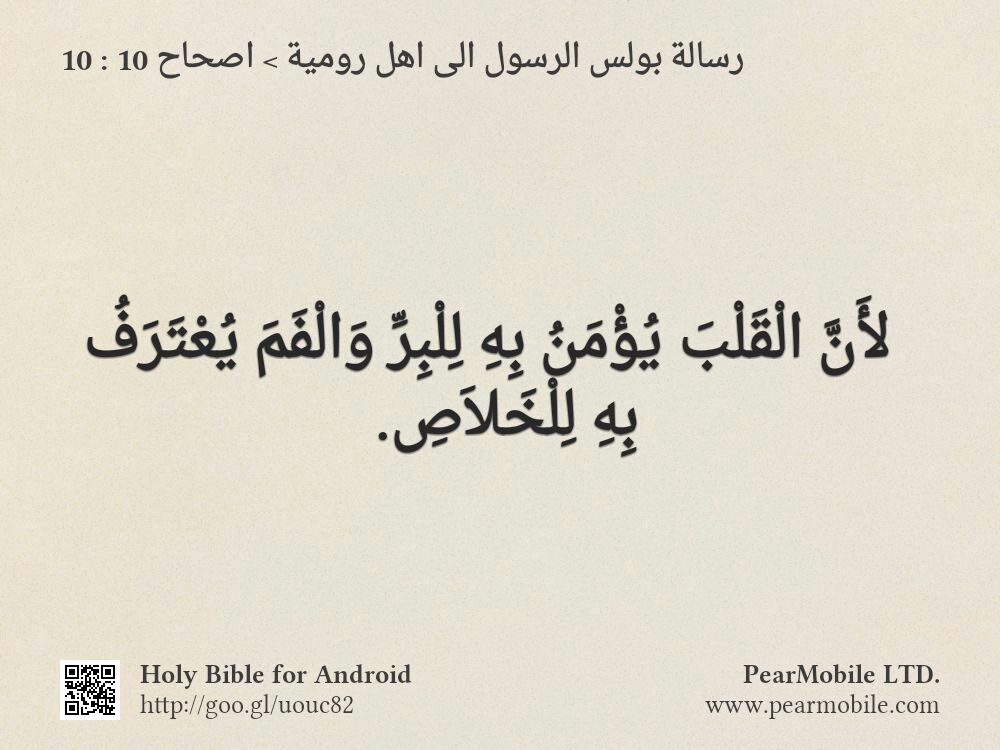 رسالة بولس الرسول الى اهل رومية > اصحاح 10 : 10
لأَنَّ الْقَلْبَ يُؤْمَنُ بِهِ لِلْبِرِّ وَالْفَمَ يُعْتَرَفُ
بِهِ لِلْخَلاَصِ.
Holy Bible for Android
http://goo.gl/uouc82
PearMobile LTD.
www.pearmobile.com